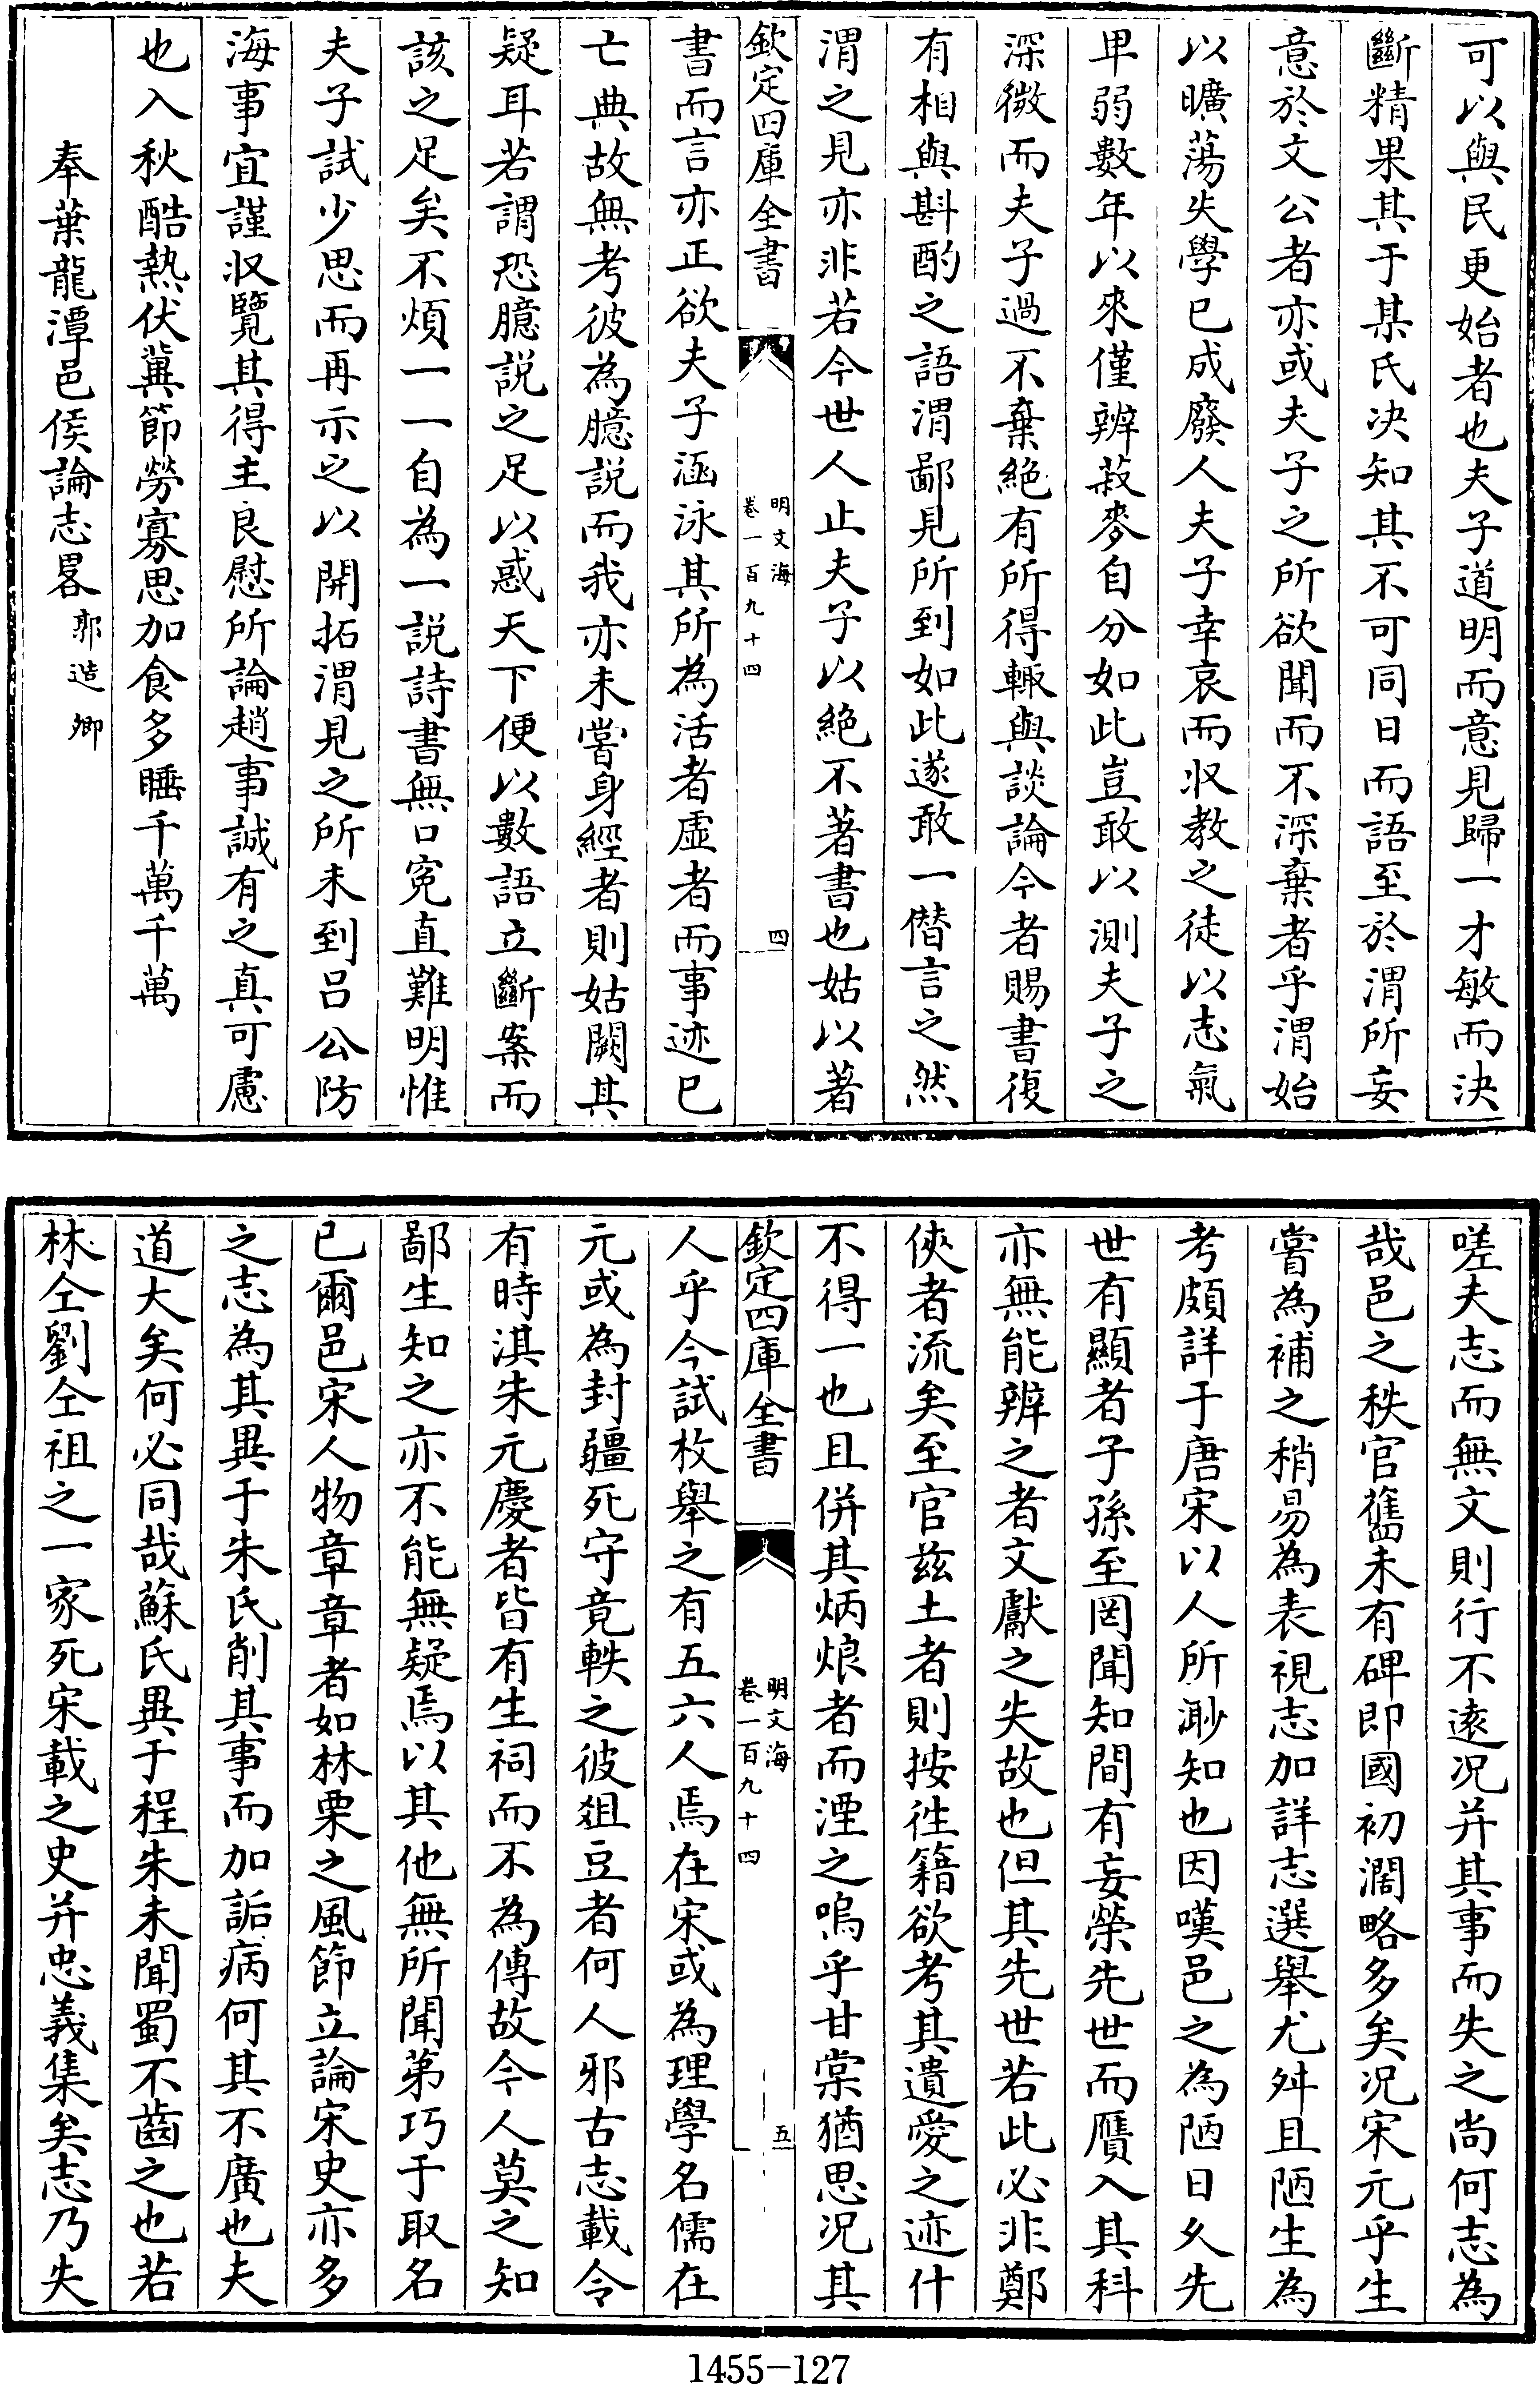 可以與民更始者也夫子道明而意見歸一才敏而決
斷精果其于某氏决知其不可同日而語至於渭所妄
意於文公者亦或夫子之所欲聞而不深棄者乎渭始
以曠蕩失學已成廢人夫子幸哀而収教之徒以志氣
卑弱數年以來僅辨菽麥自分如此豈敢以測夫子之
深微而夫子過不棄絶有所得輙與談論今者賜書復
有相與斟酌之語渭鄙見所到如此遂敢一僭言之然
渭之見亦非若今世人止夫子以絶不著書也姑以著
欽定四庫全書
明文海
卷一百九十四
四
書而言亦正欲夫子涵泳其所為活者虚者而事迹已
亡典故無考彼為臆説而我亦未嘗身經者則姑闕其
疑耳若謂恐臆説之足以惑天下便以數語立斷案而
該之足矣不煩一一自為一説詩書無口寃直難明惟
夫子試少思而再示之以開拓渭見之所未到吕公防
海事宜謹収覽其得主良慰所論趙事誠有之真可慮
也入秋酷熱伏冀節勞寡思加食多睡千萬千萬
奉葉龍潭邑侯論志畧 郭造卿
嗟夫志而無文則行不逺况并其事而失之尚何志為
哉邑之秩官舊未有碑即國初濶略多矣况宋元乎生
嘗為補之稍易為表視志加詳志選舉尤舛且陋生為
考頗詳于唐宋以人所渺知也因嘆邑之為陋日乆先
世有顯者子孫至罔聞知間有妄榮先世而贋入其科
亦無能辨之者文獻之失故也但其先世若此必非鄭
俠者流矣至官兹土者則按徃籍欲考其遺愛之迹什
不得一也且併其炳烺者而湮之嗚乎甘棠猶思况其
欽定四庫全書
明文海
卷一百九十四
五
人乎今試枚舉之有五六人焉在宋或為理學名儒在
元或為封疆死守竟軼之彼爼豆者何人邪古志載令
有時淇朱元慶者皆有生祠而不為傳故今人莫之知
鄙生知之亦不能無疑焉以其他無所聞苐巧于取名
已爾邑宋人物章章者如林栗之風節立論宋史亦多
之志為其異于朱氏削其事而加詬病何其不廣也夫
道大矣何必同哉蘇氏異于程朱未聞蜀不齒之也若
林仝劉仝祖之一家死宋載之史并忠義集矣志乃失
1455-127